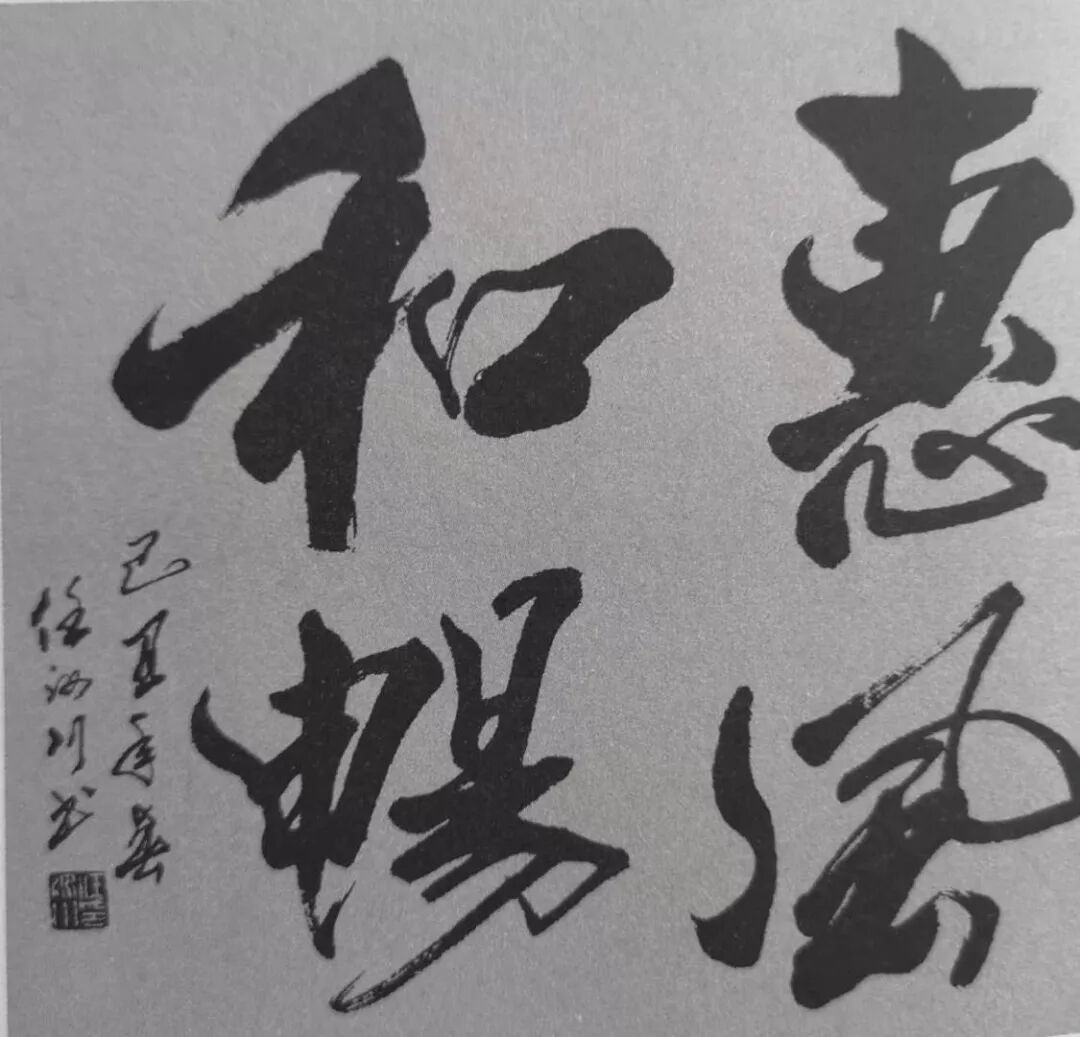 惠風
和暢
己丑年春
任汝川书